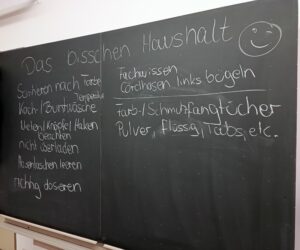 Das bisschen Haushalt
Sortieren nach Farbe
Temperatur
Koch-/Buntwäsche
Nieten/Knöpfe/Haken
beachten
nicht überladen
Hosentaschen leeren
richtig dosieren
Fachwissen
Cordhosen links bügeln
Farb-/Schmutzfangtücher
Pulver, flüssig, Tabs, etc.